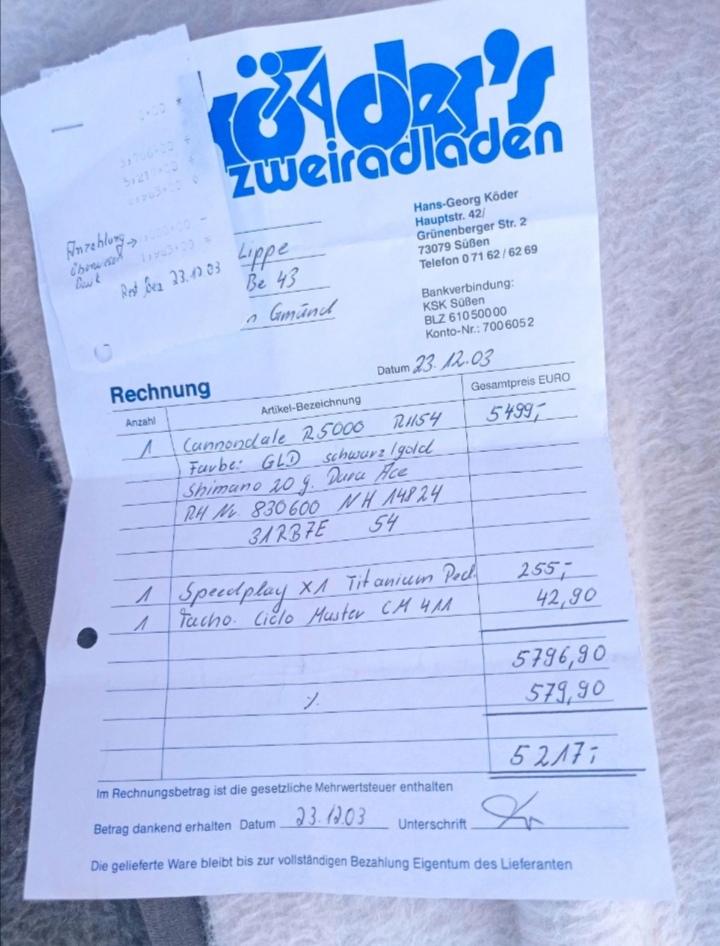 köder's
zweiradladen
Hans-Georg Köder
Hauptstr. 42/
Grünenberger Str. 2
73079 Süßen
Telefon 0 71 62 / 62 69
Bankverbindung:
KSK Süßen
BLZ 610 500 00
Konto-Nr.: 700 60 52
Anzahlung →
Rest bez 23.12.03
Lippe
Be 43
n Gmünd
Datum 23.12.03
Rechnung
Anzahl Artikel-Bezeichnung Gesamtpreis EURO
1 Cannondale R5000 RH54 5499,-
Farbe: GLD schwarz/gold
Shimano 20 g. Dura Ace
RH Nr. 830600 NH 14824
31RB7E 54
1 Speedplay X1 Titanium Ped. 255,-
1 Tacho. Ciclo Master CM 411 42,90
5796,90
% 579,90
5217,-
Im Rechnungsbetrag ist die gesetzliche Mehrwertsteuer enthalten
Betrag dankend erhalten Datum 23.12.03 Unterschrift
Die gelieferte Ware bleibt bis zur vollständigen Bezahlung Eigentum des Lieferanten